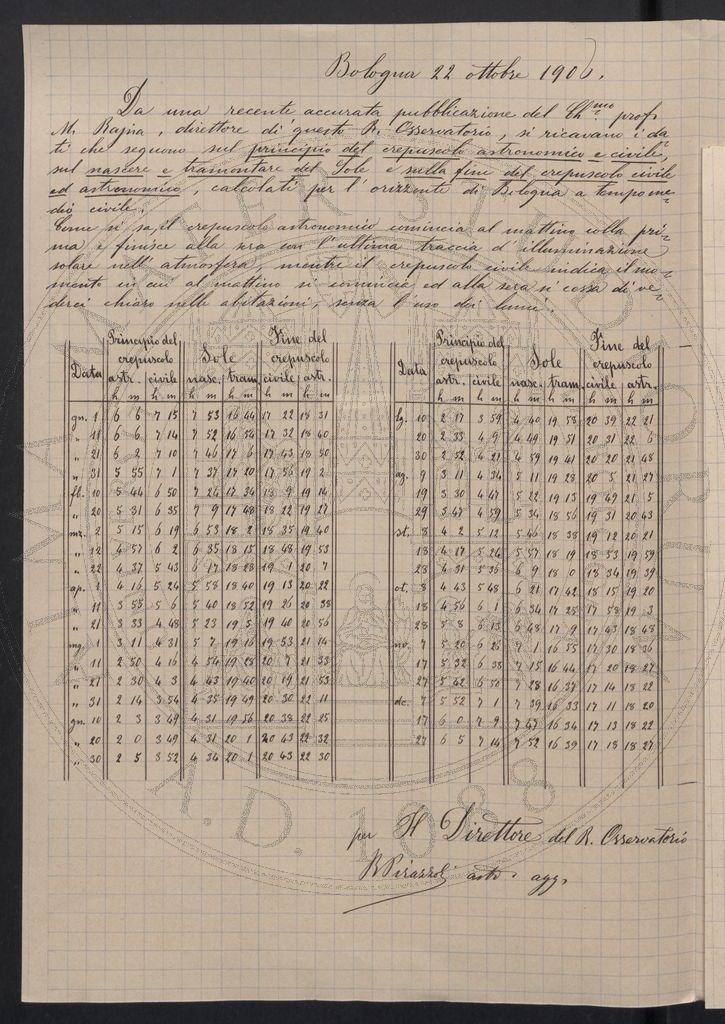 Bologna 22 ottobre 1906.
Da una recente accurata pubblicazione del Ch.mo prof.
M. Rajna, direttore di questo R. Osservatorio, si ricavano i da=
ti che seguono sul principio del crepuscolo astronomico e civile,
sul nascere e tramontare del Sole e sulla fine del crepuscolo civile
ed astronomico, calcolati per l'orizzonte di Bologna a tempo me=
dio civile.
Come si sa, il crepuscolo astronomico comincia al mattino colla pri=
ma e finisce alla sera con l'ultima traccia d'illuminazione
solare nell'atmosfera, mentre il crepuscolo civile indica il mo=
mento in cui al mattino si comincia ed alla sera si cessa di ve=
derci chiaro nelle abitazioni, senza l'uso dei lumi.
Data Principio del crepuscolo Sole Fine del crepuscolo
astr. civile nasc. tram. civile astr.
h m h m h m h m h m h m
gn. 1 6 6 7 15 7 53 16 44 17 22 18 31
" 11 6 6 7 14 7 52 16 54 17 32 18 40
" 21 6 2 7 10 7 46 17 6 17 43 18 50
" 31 5 55 7 1 7 37 17 20 17 56 19 2
fb. 10 5 44 6 50 7 24 17 34 18 9 19 14
" 20 5 31 6 35 7 9 17 48 18 22 19 27
mz. 2 5 15 6 19 6 53 18 2 18 35 19 40
" 12 4 57 6 2 6 35 18 15 18 48 19 53
" 22 4 37 5 43 6 17 18 28 19 1 20 7
ap. 1 4 16 5 24 5 58 18 40 19 13 20 22
" 11 3 55 5 6 5 40 18 52 19 26 20 38
" 21 3 33 4 48 5 23 19 5 19 40 20 56
mg. 1 3 11 4 31 5 7 19 16 19 53 21 14
" 11 2 50 4 16 4 54 19 28 20 7 21 33
" 21 2 30 4 3 4 43 19 40 20 19 21 53
" 31 2 14 3 54 4 35 19 49 20 30 22 11
gn. 10 2 3 3 49 4 31 19 56 20 38 22 25
" 20 2 0 3 49 4 31 20 1 20 43 22 32
" 30 2 5 3 52 4 34 20 1 20 43 22 30
Data Principio del crepuscolo Sole Fine del crepuscolo
astr. civile nasc. tram. civile astr.
h m h m h m h m h m h m
lg. 10 2 17 3 59 4 40 19 58 20 39 22 21
20 2 33 4 9 4 49 19 51 20 31 22 6
30 2 52 4 21 4 59 19 41 20 20 21 48
ag. 9 3 11 4 34 5 11 19 28 20 5 21 27
19 3 30 4 47 5 22 19 13 19 49 21 5
29 3 47 4 59 5 34 18 56 19 31 20 43
st. 8 4 2 5 12 5 46 18 38 19 12 20 21
18 4 17 5 24 5 57 18 19 18 53 19 59
28 4 31 5 36 6 9 18 0 18 34 19 39
ot. 8 4 43 5 48 6 21 17 42 18 15 19 20
18 4 56 6 1 6 34 17 25 17 58 19 3
28 5 8 6 13 6 48 17 9 17 43 18 48
no. 7 5 20 6 26 7 1 16 55 17 30 18 36
17 5 32 6 38 7 15 16 44 17 20 18 27
27 5 42 6 50 7 28 16 37 17 14 18 22
dc. 7 5 52 7 1 7 39 16 33 17 11 18 20
17 6 0 7 9 7 47 16 34 17 13 18 22
27 6 5 7 14 7 52 16 39 17 18 18 27
per Il Direttore del R. Osservatorio
B Pirazzoli astr. agg.
A.D. 1088